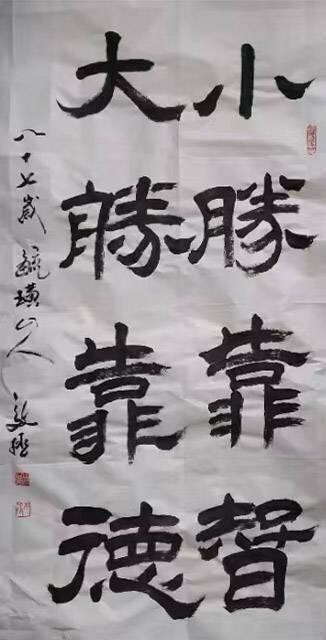 小勝靠智
大勝靠德
八十七歲 山人